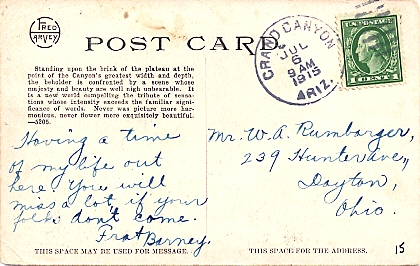 FRED
HARVEY
POST CARD
GRAND CANYON
JUL
6
9 AM
1915
ARIZ.
U.S. POSTAGE
1 CENT 1
Standing upon the brick of the plateau at the
point of the Canyon's greatest width and depth,
the beholder is confronted by a scene whose
majesty and beauty are well nigh unbearable. It
is a new world compelling the tribute of sensa-
tions whose intensity exceeds the familiar signi-
ficance of words. Never was picture more har-
monious, never flower more exquisitely beautiful.
—5205.
Having a time
of my life out
here you will
miss a lot if your
folks don't come.
Frat Barney.
Mr. W. A. Rumbarger,
239 Hunter ave,
Dayton,
Ohio.
THIS SPACE MAY BE USED FOR MESSAGE.
THIS SPACE FOR THE ADDRESS.
15